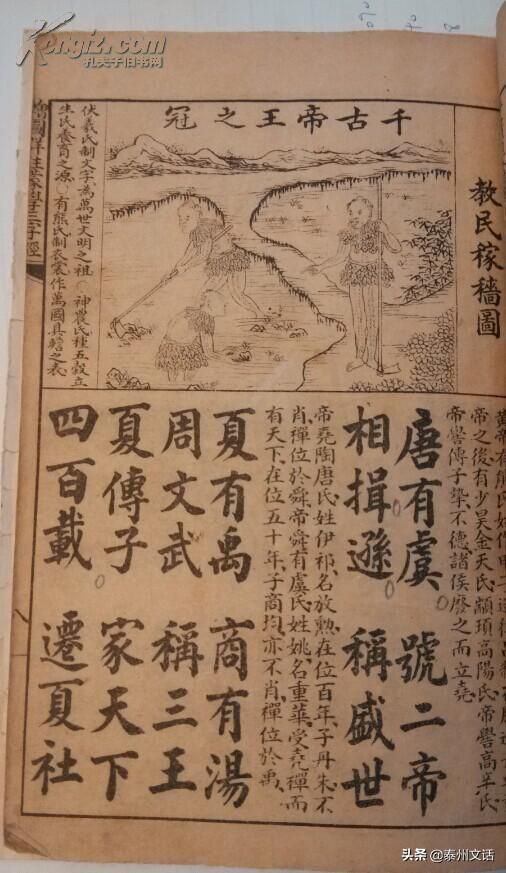 Kongfz.com
孔夫子旧书网
教民稼穡圖
千古帝王之冠
伏羲氏制文字為萬世文明之祖○神農氏種五穀立
生民養育之源○有熊氏制衣裳作萬國具瞻之表
帝之後有少昊金天氏顓頊高陽氏帝嚳高辛氏
帝嚳傳子摯不德諸侯廢之而立堯
唐有虞 號二帝
相揖遜 稱盛世
帝堯陶唐氏姓伊祁名放勲在位百年子丹朱不
肖禪位於舜帝舜有虞氏姓姚名重華受堯禪而
有天下在位五十年子商均亦不肖禪位於禹
夏有禹 商有湯
周文武 稱三王
夏傳子 家天下
四百載 遷夏社
三字經
头条 @泰州文话